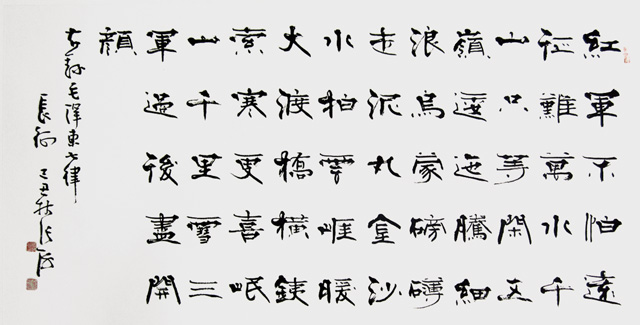 紅軍不怕遠
征難萬水千
山只等閑五
嶺逶迤騰細
浪烏蒙磅礴
走泥丸金沙
水拍雲崖暖
大渡橋橫銕
索寒更喜岷
山千里雪三
軍過後盡開
顏
毛澤東七律
長征 丑秋